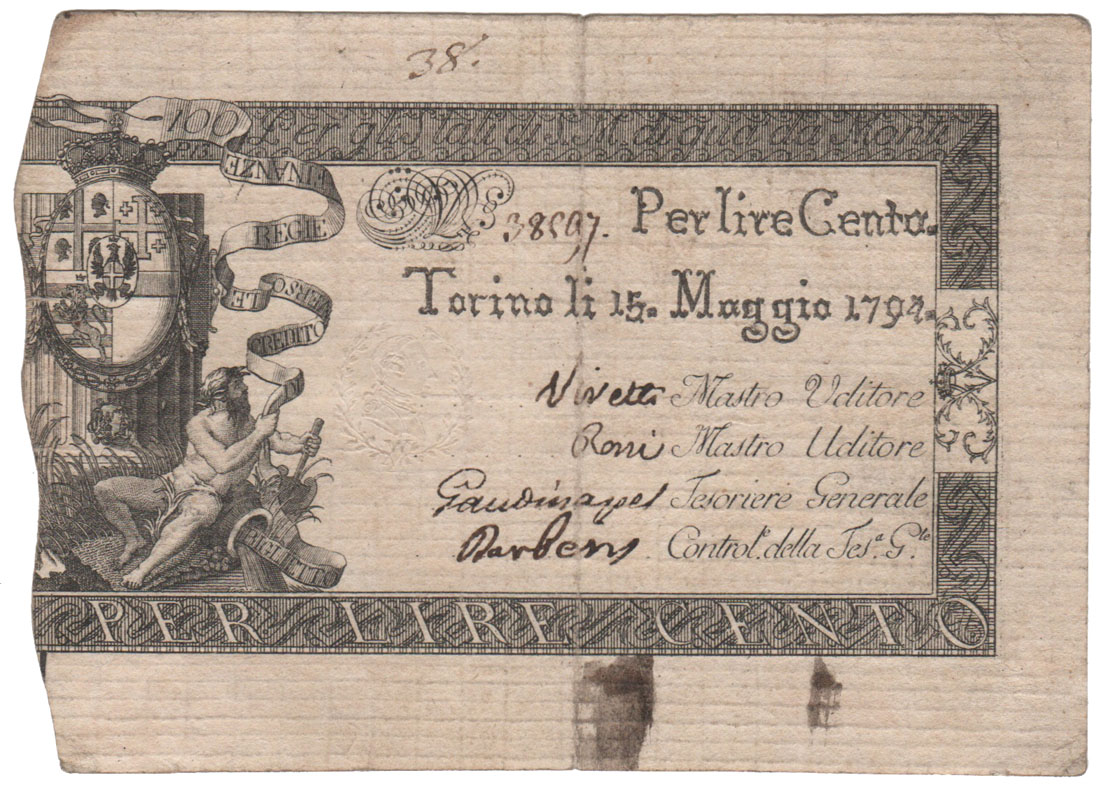 38.
100 Per gli Stati di S. M. di qua da Monti
FINANZE
REGIE
VERSO LE
CREDITO
BIGLIETTO
N.º 38597. Per lire Cento.
Torino li 15. Maggio 1794.
Vivetti Mastro Uditore
Roni Mastro Uditore
Tesoriere Generale
Control.r della Tes.a G.le
PER LIRE CENTO